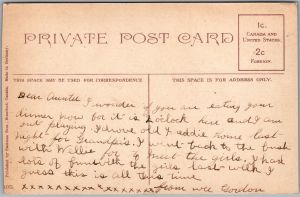 PRIVATE POST CARD
1c.
CANADA AND
UNITED STATES.
2c
FOREIGN.
THIS SPACE MAY BE USED FOR CORRESPONDENCE
THIS SPACE IS FOR ADDRESS ONLY.
Dear Auntie I wonder if you are eating your
dinner now for it is 2 oclock here and I am
out playing. I drove old Eddie home last
night for Grandpa's. I went back to the bush
with Willie for to meet the girls. I had
lots of fun with the girls last with I
guess this is all this time
xxxxxxxxxxxxxxxx from wee Gordon